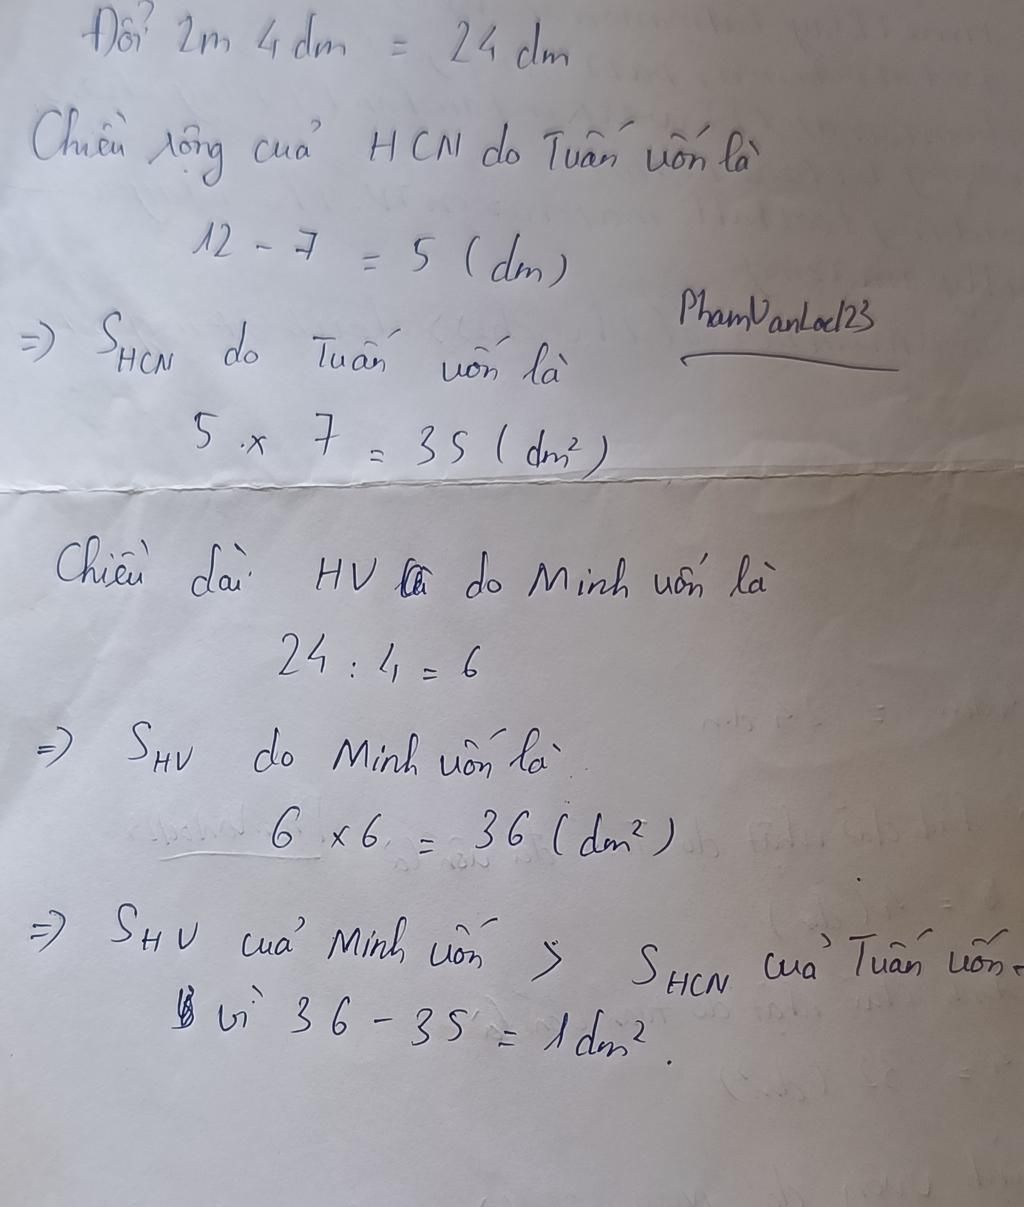 Đổi 2m 4dm = 24 dm
Chiều rộng của HCN do Tuấn uốn là
12 - 7 = 5 (dm)
PhamVanLoc123
=> SHCN do Tuấn uốn là
5 x 7 = 35 (dm²)
Chiều dài HV do Minh uốn là
24 : 4 = 6
=> SHV do Minh uốn là
6 x 6 = 36 (dm²)
=> SHV của Minh uốn > SHCN của Tuấn uốn
vì 36 - 35 = 1dm².